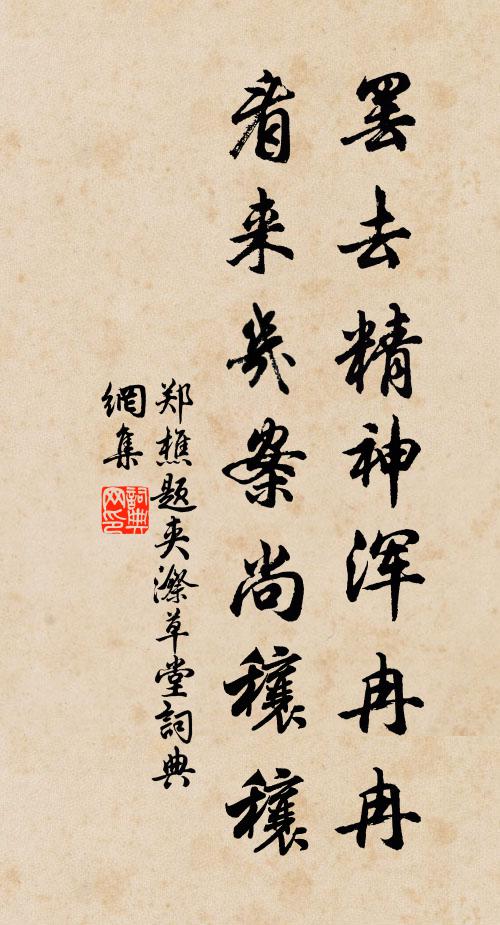 罢去精神浑冉冉
看来几案尚穰穰
郑樵题夹漈草堂詞典
網集
詞典网印